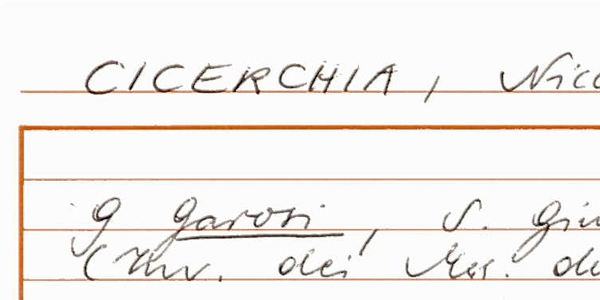 CICERCHIA, Nicc
G Garosi, S. Giu
(Inv. dei Mss. de